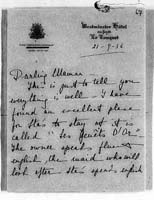 Westminster Hotel
Le Touquet
21-9-36
Darling Maman -
This is just to tell you
everything is well - I have
found an excellent place
for Stas to stay at it is
called "Les Genêts D'Or"
The owner speaks fluent
english the maid who will
look after speaks english